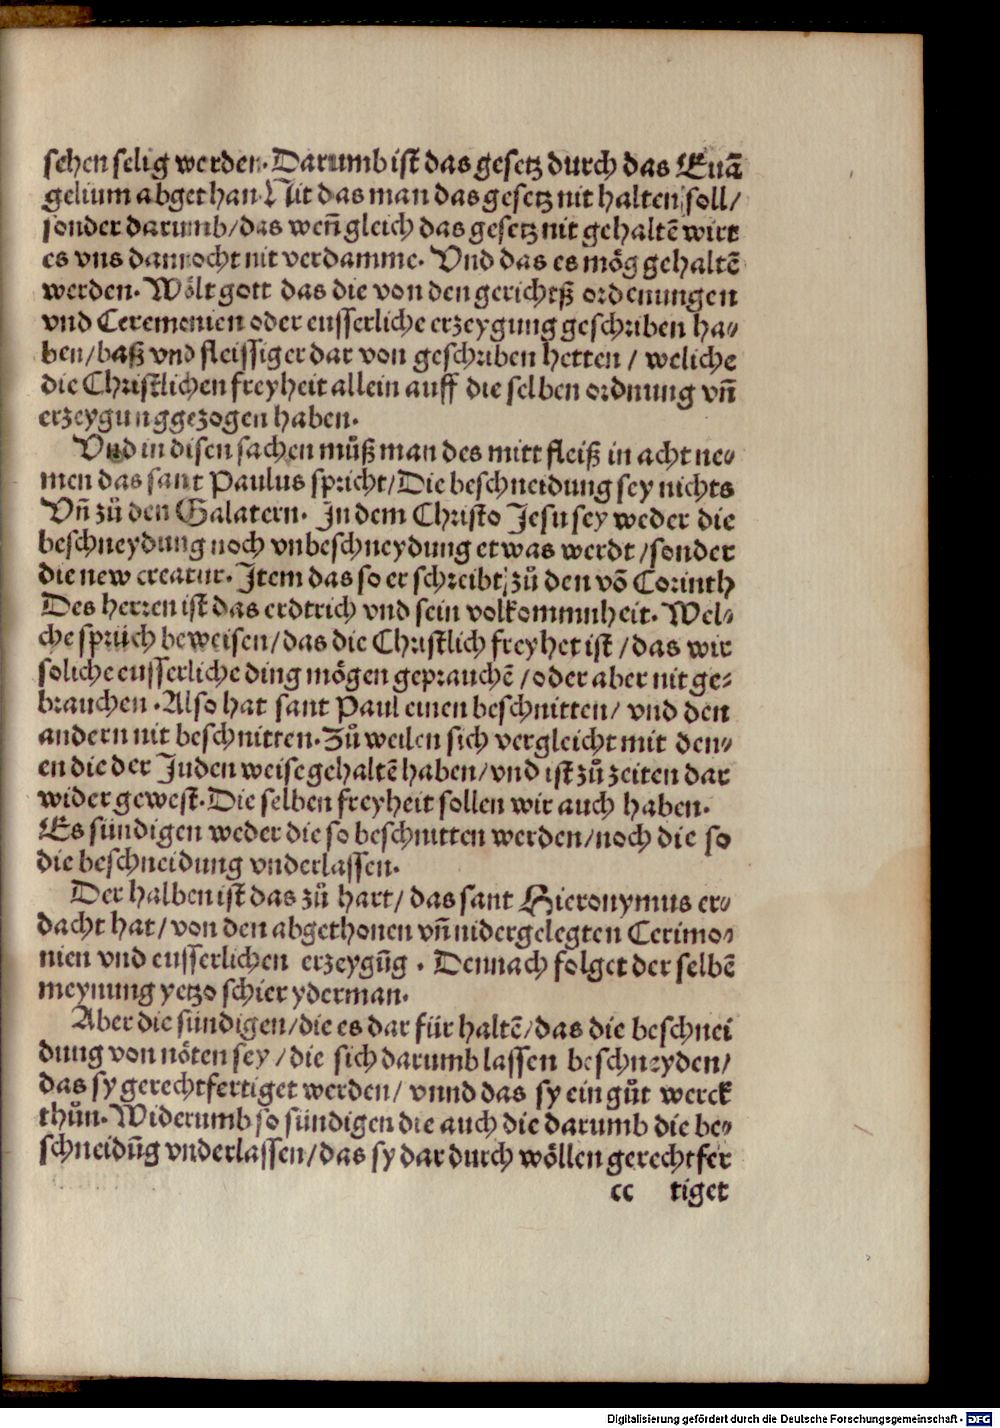 sehen selig werden. Darumb ist das gesetz durch das Euã
gelium abgethan Nit das man das gesetz nit halten soll/
sonder darumb/das weñ gleich das gesetz nit gehaltẽ wirt
es vns dannocht nit verdamme. Vnd das es mög gehaltẽ
werden. Wölt gott das die von den gerichtß ordenungen
vnd Ceremonien oder eusserliche erzeygung geschriben ha⸗
ben/baß vnd fleissiger dar von geschriben hetten / weliche
die Christlichen freyheit allein auff die selben ordnung vñ
erzeygung gezogen haben.
Vnd in disen sachen můß man des mitt fleiß in acht ne⸗
men das sant Paulus spricht/Die beschneidung sey nichts
Vñ zů den Galatern. In dem Christo Jesu sey weder die
beschneydung noch vnbeschneydung etwas werdt /sonder
die new creatur. Item das so er schreibt zů den võ Corinth
Des herren ist das erdtrich vnd sein volkommnheit. Wel⸗
che sprüch beweisen/das die Christlich freyhet ist /das wir
soliche eusserliche ding mögen geprauchẽ /oder aber nit ge⸗
brauchen .Also hat sant Paul einen beschnitten/ vnd den
andern nit beschnitten. Zů weilen sich vergleicht mit den⸗
en die der Juden weise gehaltẽ haben/vnd ist zů zeiten dar
wider gewest. Die selben freyheit sollen wir auch haben.
Es sündigen weder die so beschnitten werden/noch die so
die beschneidung vnderlassen.
Der halben ist das zů hart/ das sant Hieronymus er⸗
dacht hat/ von den abgethonen vñ nidergelegten Cerimo⸗
nien vnd eusserlichen erzeygũg . Dennach folget der selbẽ
meynung yetzo schier yderman.
Aber die sündigen/die es dar für haltẽ/das die beschnei
dung von nöten sey /die sich darumb lassen beschneyden/
das sy gerechtfertiget werden/ vnnd das sy ein gůt werck
thůn. Widerumb so sündigen die auch die darumb die be⸗
schneidũg vnderlassen/das sy dar durch wöllen gerechtfer
cc tiget
Digitalisierung gefördert durch die Deutsche Forschungsgemeinschaft - DFG